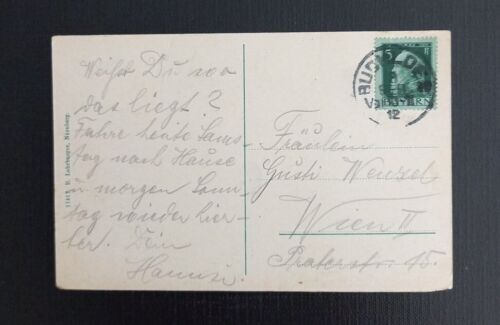 Weißt Du wo
das liegt?
Fahre heute Sams-
tag nach Hause
u morgen Sonn-
tag wieder hier-
her. Dein
Hansi.
Fräulein
Gusti Wenzel
Wien II
Praterstr. 45.
5
BAYERN
12
B. Lehrburger, Nürnberg.